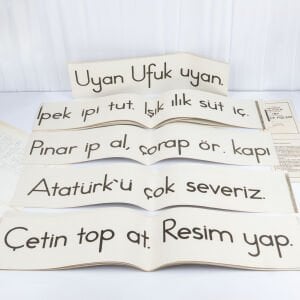 Uyan Ufuk uyan.
İpek ipi tut. Işık ılık süt iç.
Pınar ip al, çorap ör. kapı
Atatürk`ü çok severiz.
Çetin top at. Resim yap.